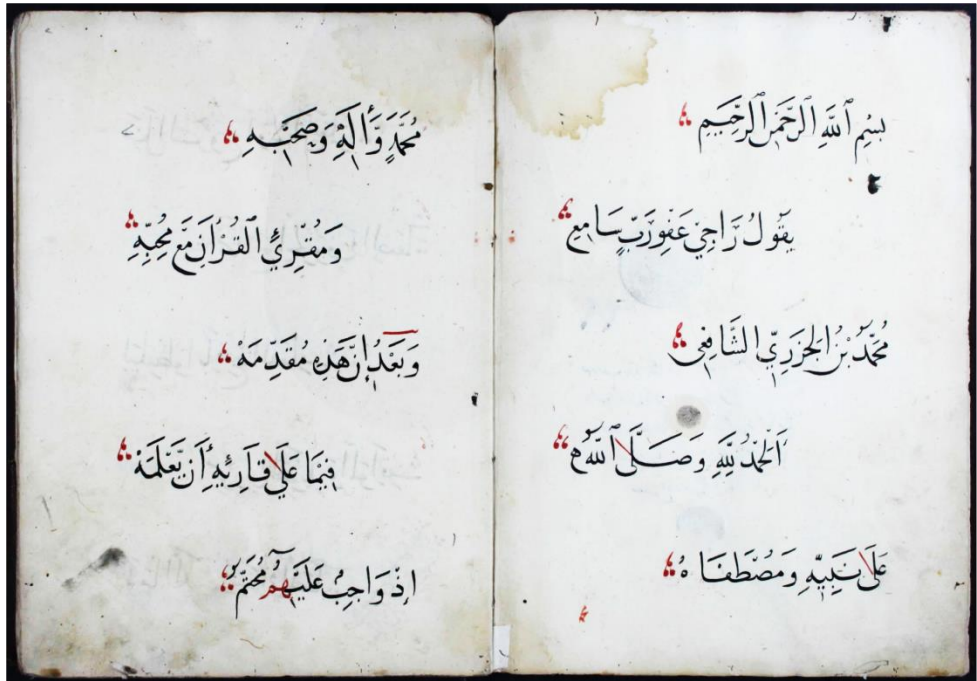 بِسْمِ ٱللَّهِ ٱلرَّحْمَنِ ٱلرَّحِيمِ
يَقُولُ رَاجِي عَفْوِ رَبٍّ سَامِعِ
مُحَمَّدُ بْنُ الْجَزَرِيِّ الشَّافِعِي
اَلْحَمْدُ لِلَّهِ وَصَلَّى ٱللَّهُ
عَلَى نَبِيِّهِ وَمُصْطَفَاهُ
مُحَمَّدٍ وَّأَلِهِ وَصَحْبِهِ
وَمُقْرِئِ الْقُرْأَنِ مَعْ مُحِبِّهِ
وَبَعْدُ إِنَّ هَذِهِ مُقَدِّمَهْ
فِيمَا عَلَى قَارِئِهِ أَنْ يَعْلَمَهْ
اِذْ وَاجِبٌ عَلَيْهِمُ مُحَتَّمُ